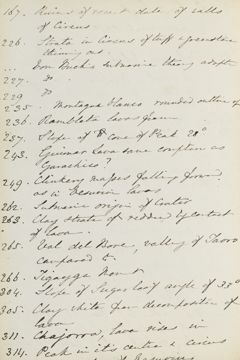 167. Ruins of recent date of walls
of Circus.
226. Strata in Circus of tuff & greenstone
thinning out.
... Von Buch's submarine theory adopted
227. Do
229 Do
235. Montagna blanca rounded outline of
236. Rambleta lavas from
237. Slope of cone of Peak 28°
243. Guimar Lava same eruption as
Garachico?
249. Clinkery masses falling from,
as in Vesuvian lavas
262. Submarine origin of Crater
263. Clay strata of reddened by contact
of lava.
265. Ucal del Bove, valley of Taoro
compared to.
266. Tigayga Mount
304. Slope of Sugar loaf angle of 35°
305. Clay white from decomposition of
lava
311. Chajorra, lava rises in
314. Peak in its centre a circus